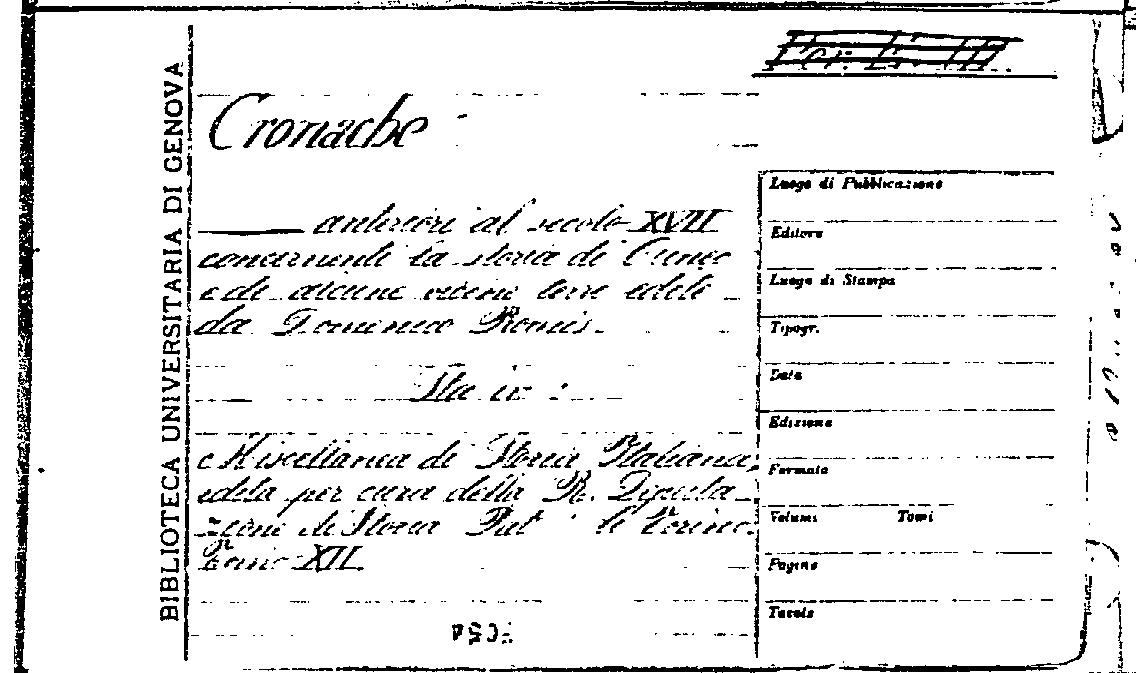 BIBLIOTECA UNIVERSITARIA DI GENOVA
Cronache
anteriori al secolo XVII
concernenti la storia di Cuneo
e di alcune vicine terre edite
da Domenico Promis.
Sta in :
Miscellanea di Storia Italiana,
edita per cura della R. Deputa
zione di Storia Pat Torino.
Tomo XII
Luogo di Pubblicazione
Editore
Luogo di Stampa
Tipogr.
Data
Edizione
Formato
Volumi Tomi
Pagine
Tavole